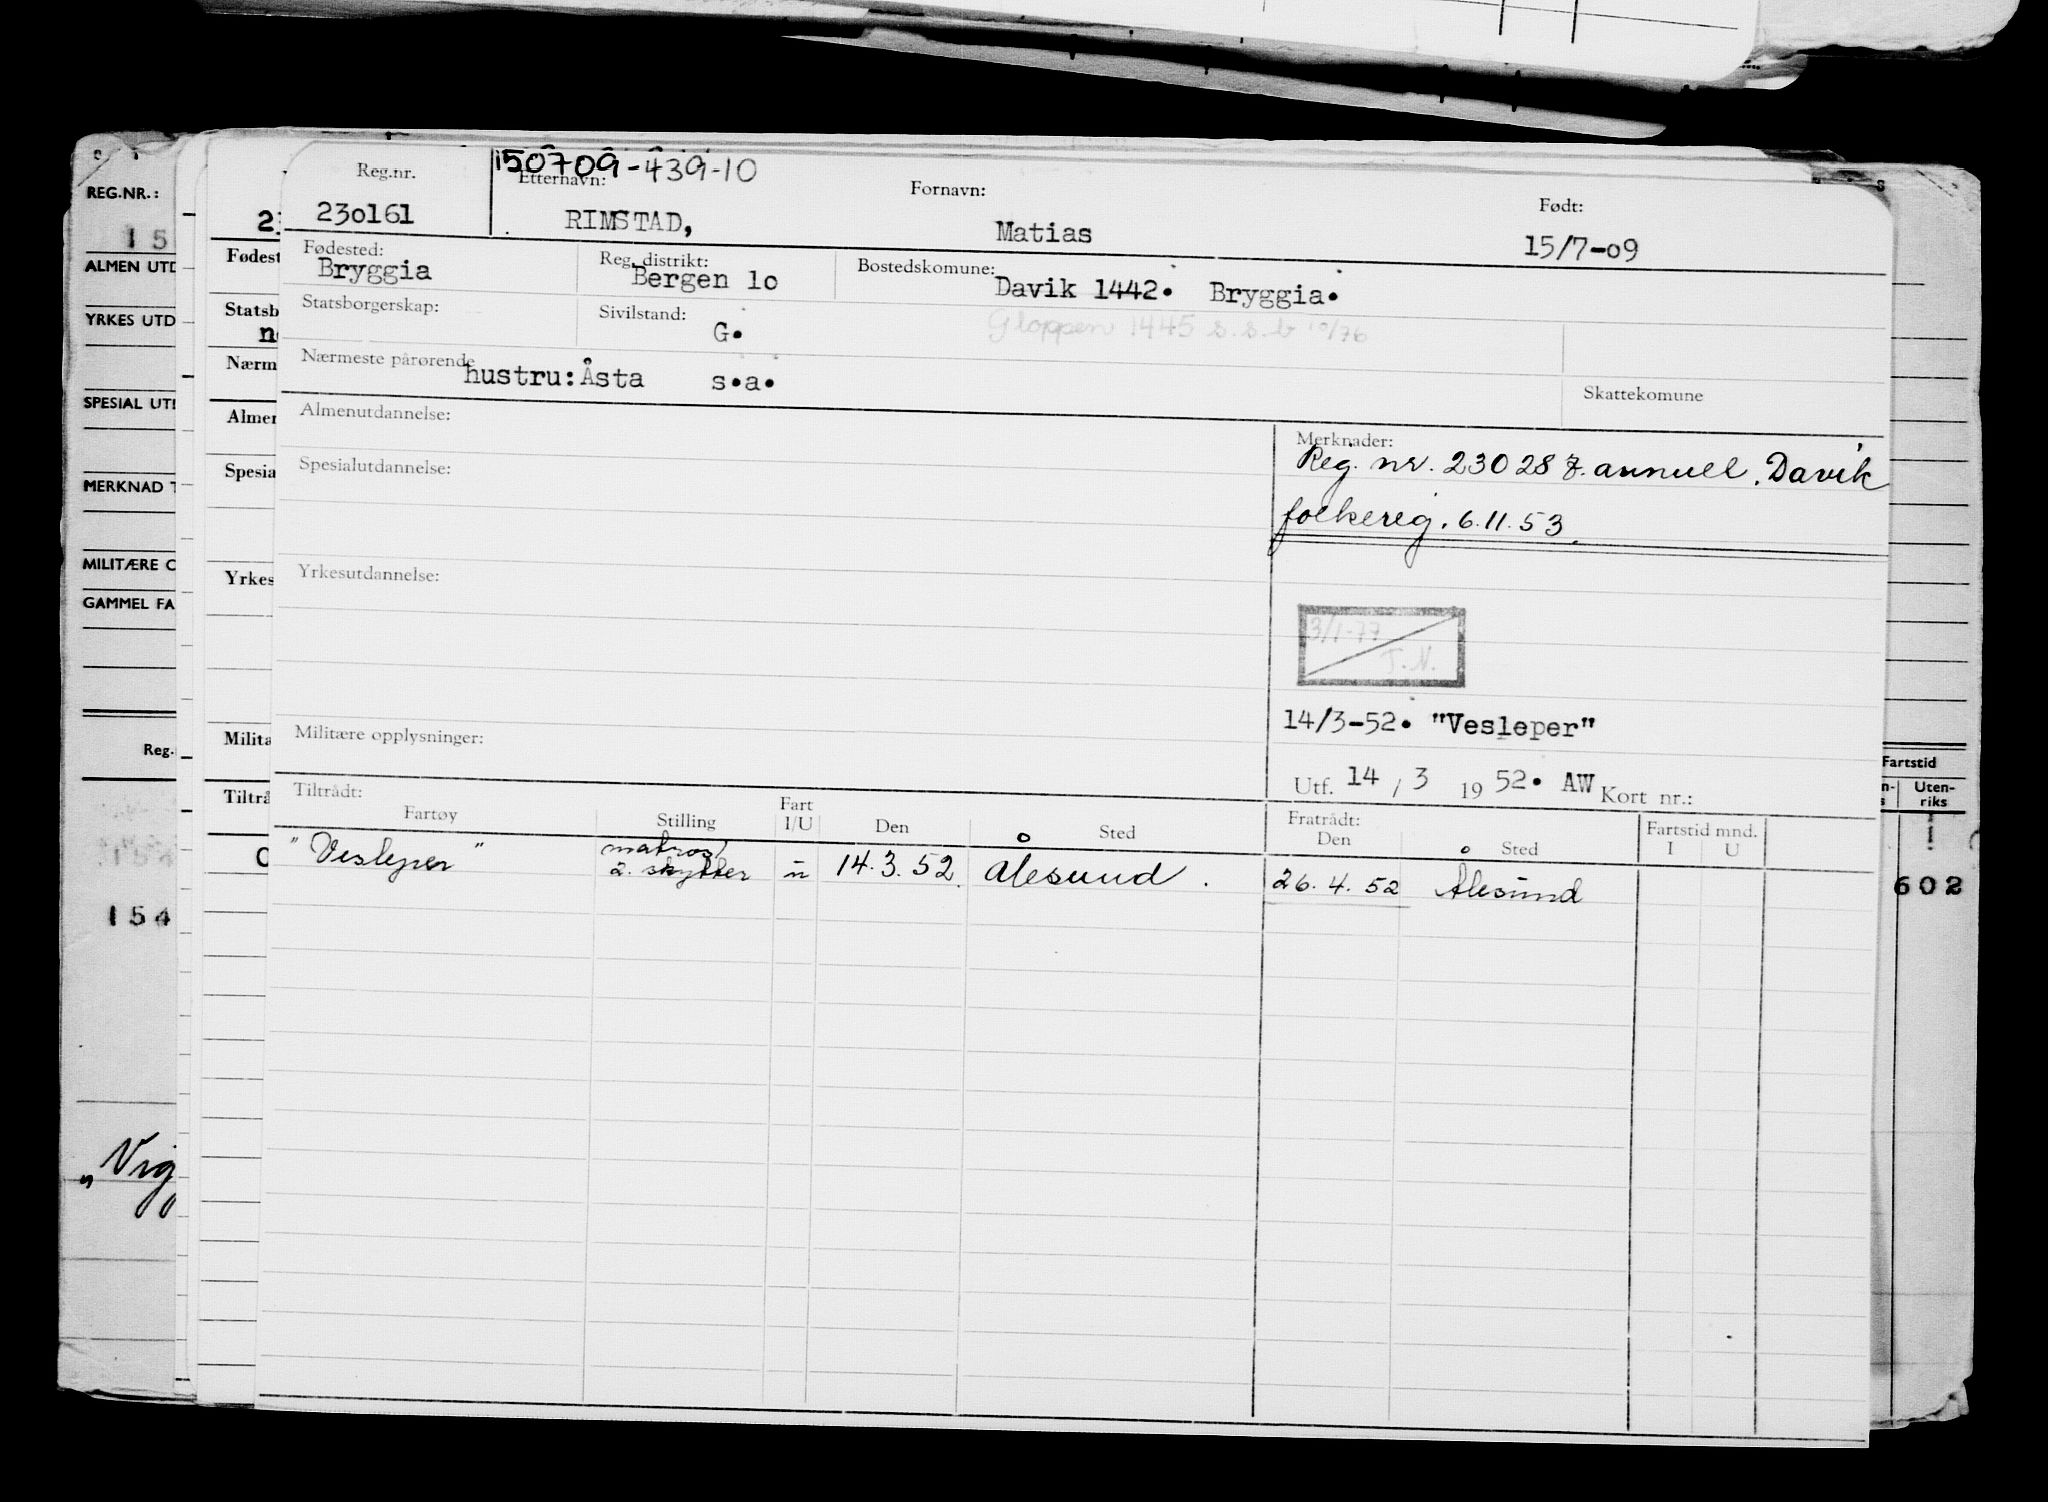 150709-439-10
Reg.nr. Etternavn: Fornavn: Født:
230161 RIMSTAD, Matias 15/7-09
Fødested: Reg. distrikt: Bostedskomune:
Bryggia Bergen 10 Davik 1442. Bryggia.
Statsborgerskap: Sivilstand: G. Gloppen 1445 s.s.b 10/76
Nærmeste pårørende hustru: Åsta s.a.
Skattekomune
Almenutdannelse:
Merknader:
Reg. nr. 230287 annull. Davik
folkereg. 6.11.53.
Spesialutdannelse:
Yrkesutdannelse:
3/1-77
T.N.
14/3-52. "Vesleper"
Militære opplysninger:
Utf. 14 / 3 19 52. AW Kort nr.:
Tiltrådt: Fratrådt:
Fartøy Stilling Fart I/U Den Sted Den Sted Fartstid mnd. I U
"Vesleper" matros/ 2. skytter u 14.3.52. Ålesund. 26.4.52 Ålesund
REG.NR.:
15
ALMEN UTD
YRKES UTD
SPESIAL UT
MERKNAD T
MILITÆRE O
GAMMEL FA
Reg.
154
"Vig
2
Fødest
Statsb
n
Nærm
Almen
Spesia
Yrkes
Milita
Tiltrå
Fartstid
Uten-
riks
602